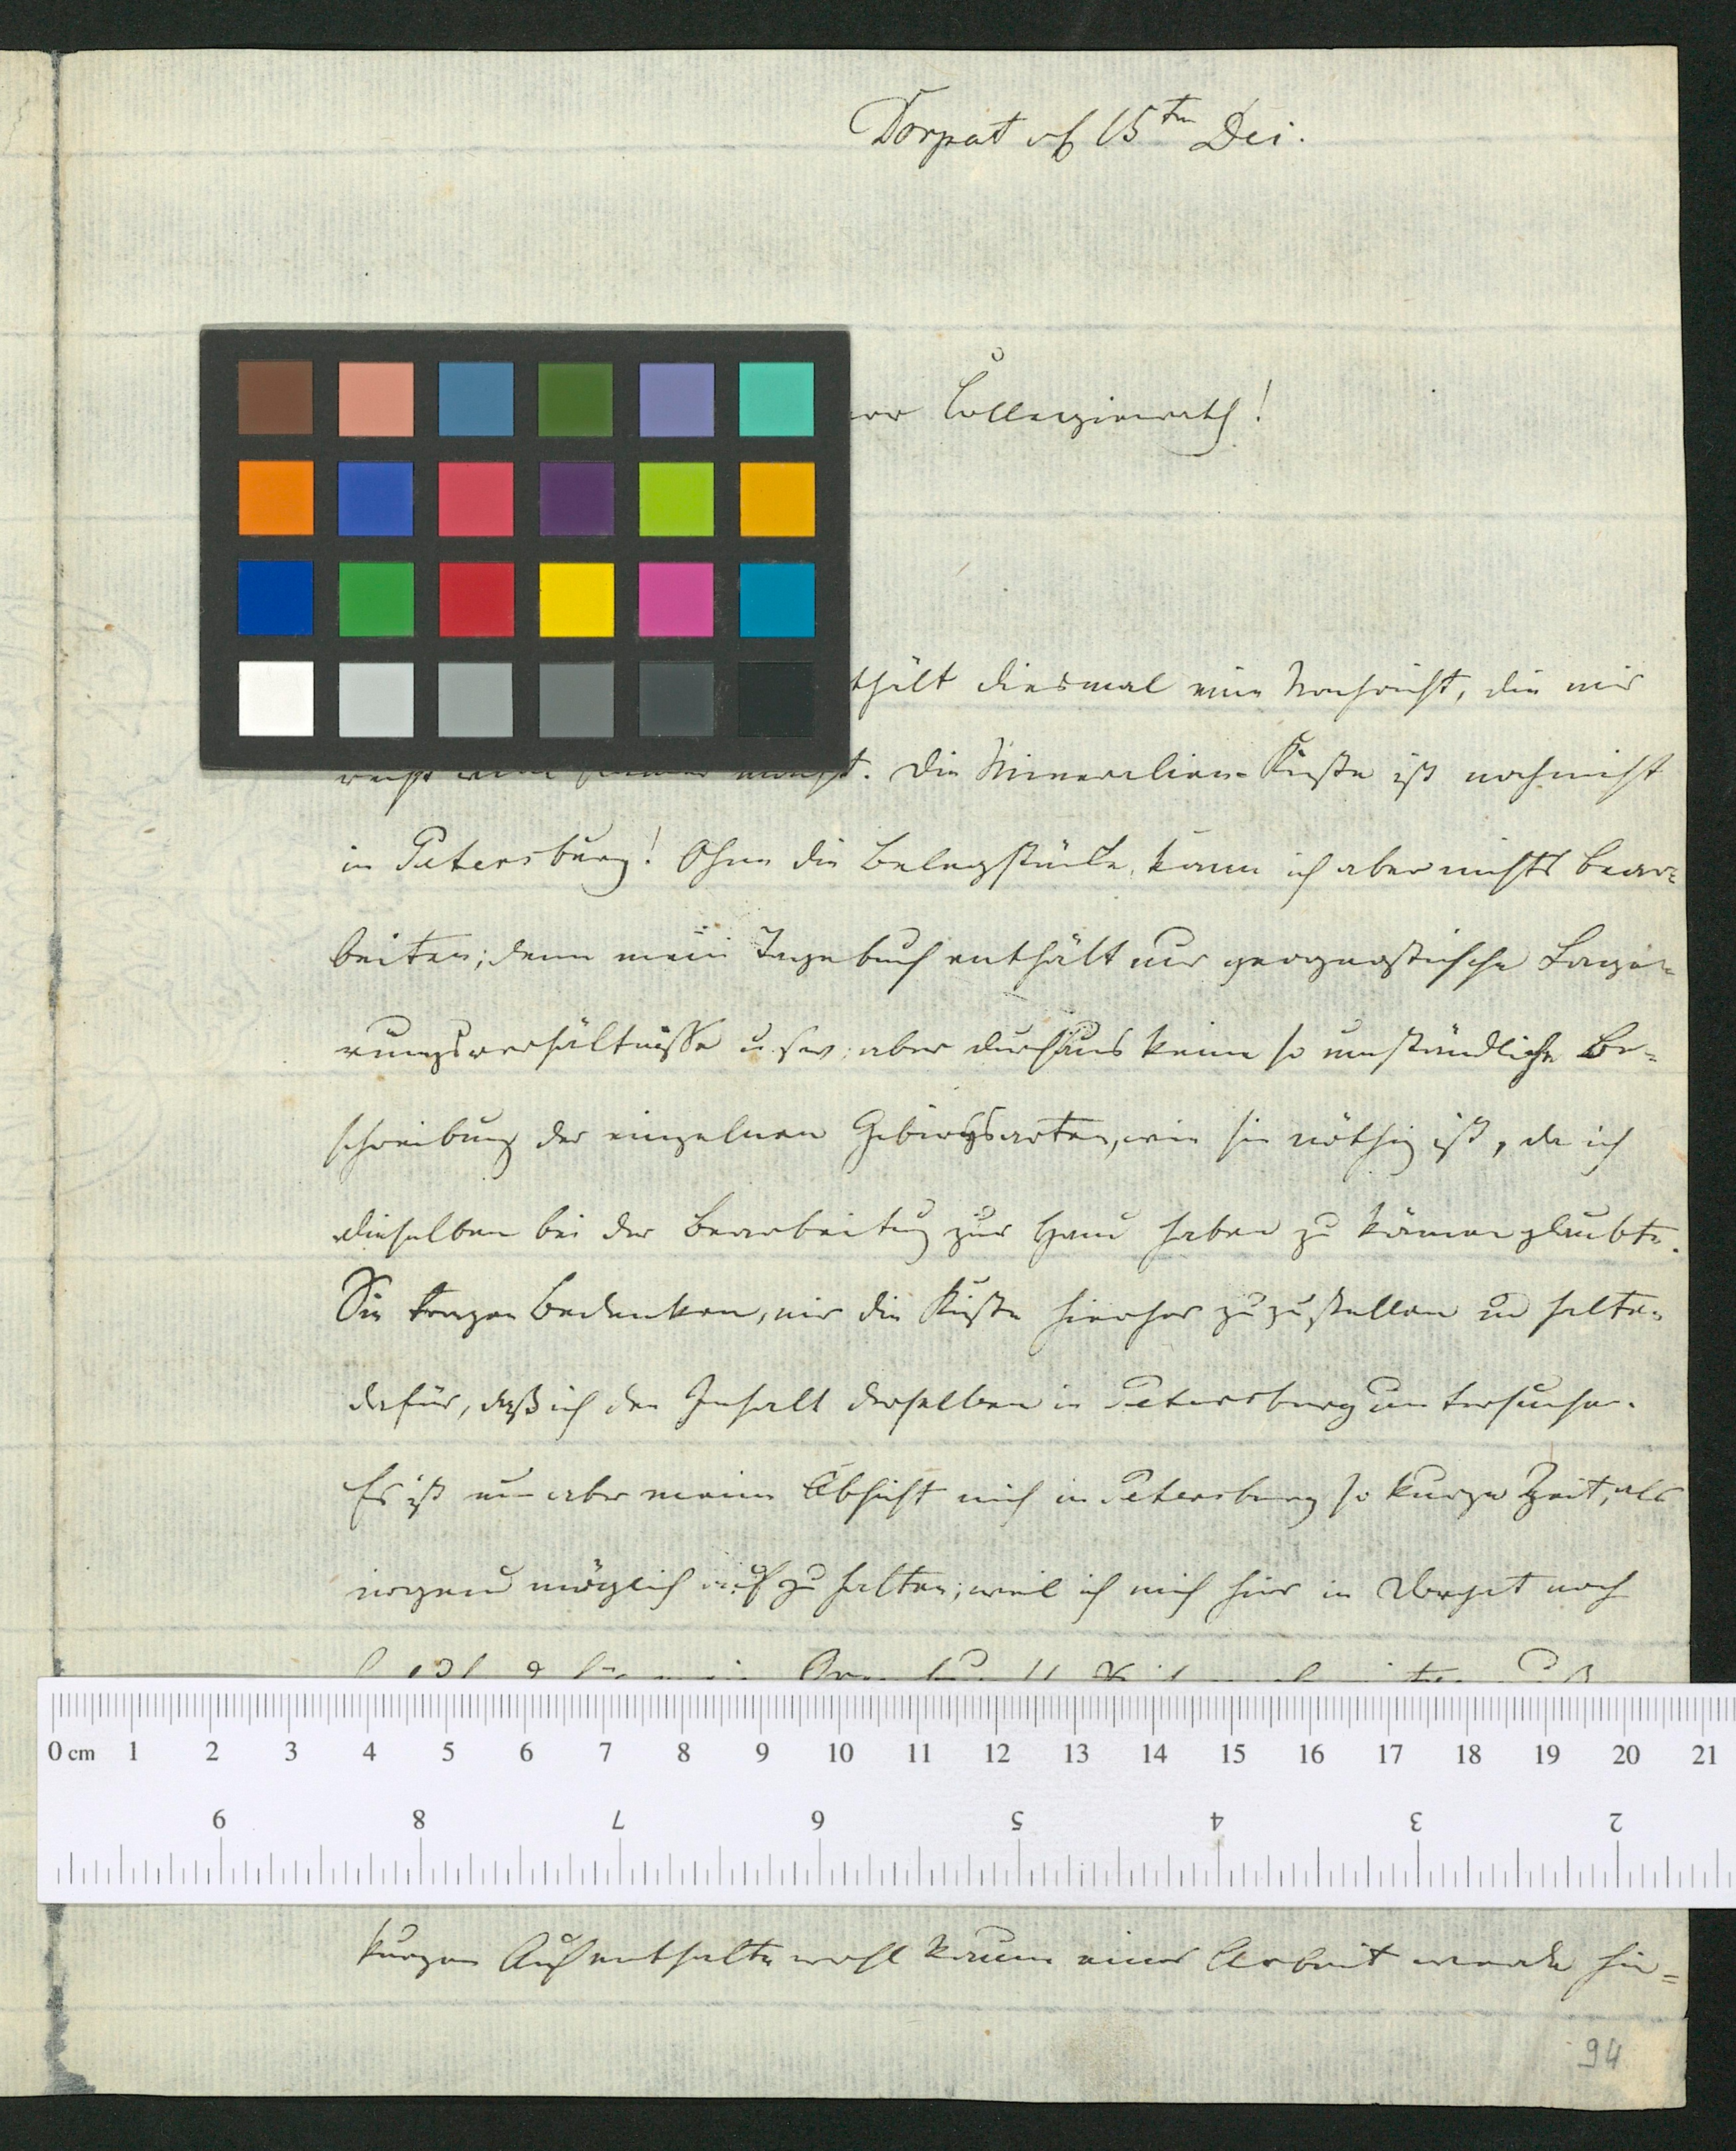 Dorpat d 15ten Dec.
Collegienrath!
thält diesmal eine Nachricht, die mir
recht macht. Die Mineralien-Kiste ist noch nicht
in Petersburg! Ohne die Belegstücke, kann ich aber nichts bear-
beiten; denn mein Tagebuch enthält nur geognostische Lage-
rungsverhältnisse u. s w. aber durchaus keine so umständliche Be-
schreibung der einzelnen Gebirgsarten, wie sie nöthig ist, da ich
dieselben bei der Bearbeitung zur Hand haben zu können glaubte.
Sie tragen Bedenken, mir die Kiste hierher zuzustellen und halten
dafür, daß ich den Inhalt derselben in Petersburg untersuche.
Es ist nun aber meine Absicht mich in Petersburg so kurze Zeit, als
irgend möglich aufzuhalten; weil ich mich hier in Dorpat noch
kurzen Aufenthalte wohl kaum einer Arbeit werde hin-
94
0 cm 1 2 3 4 5 6 7 8 9 10 11 12 13 14 15 16 17 18 19 20 21
9 8 7 6 5 4 3 2